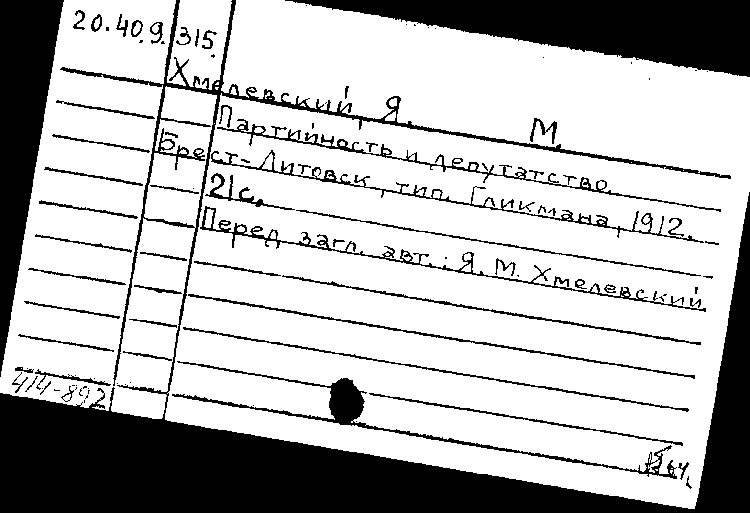 20.40.9.315.
Хмелевский, Я. М.
Партийность и депутатство.
Брест-Литовск, тип. Гликмана, 1912.
21с.
Перед загл. авт.: Я. М. Хмелевский
414-892
64.